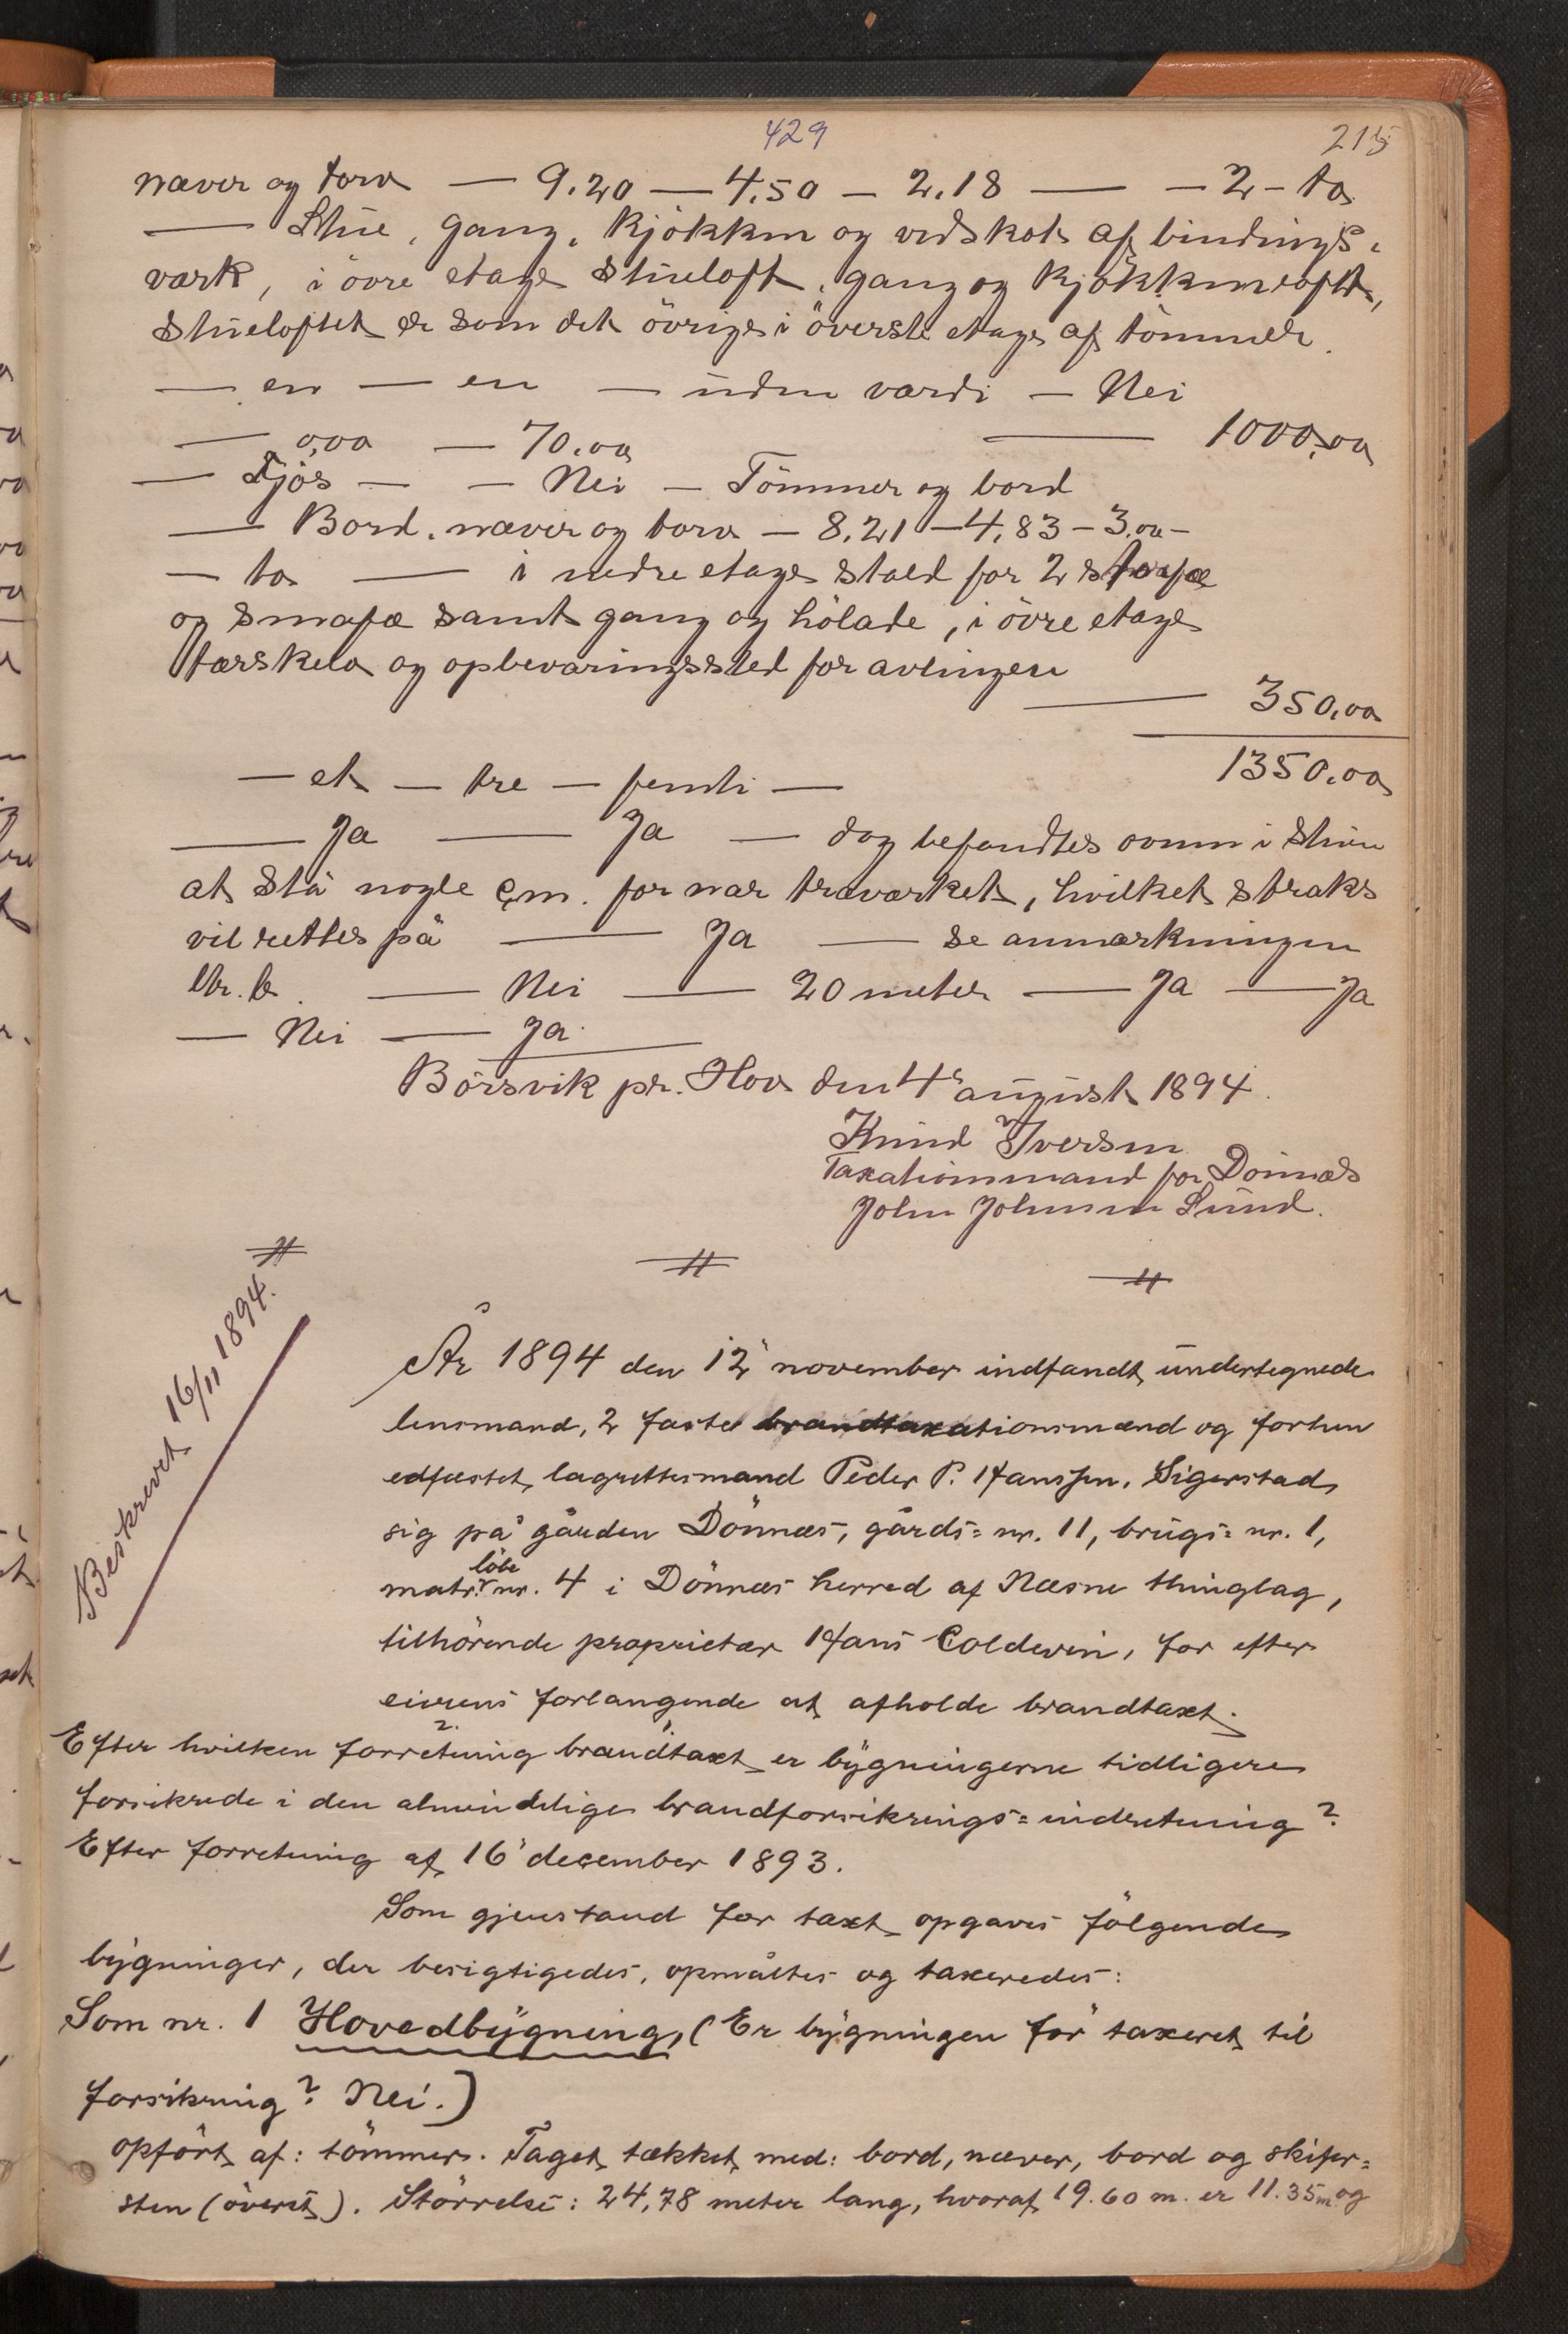 429
215
næver og torv — 9.20 — 4.50 — 2.18 — — 2 — to
— Stue, gang, kjökken og vedskot af bindings-
værk, i övre etage stueloft, gang og kjökkenloft,
stueloftet er som det övrige i överste etage af tömmer.
— en — en — uden værdi — Nei
— 0,00 — 70.00 — 1000,00
— Fjös — — Nei — Tömmer og bord
— Bord, næver og torv — 8.21 — 4.83 — 3.00 —
— to — i nedre etage stald for 2 storfæ
og smafæ samt gang og hölade, i övre etage
tærskelo og opbevaringssted for avlingen
— 350.00
— et — tre — femti — 1350.00
— Ja — Ja — dog befandtes ovnen i stuen
at stå nogle cm. for nær træværket, hvilket straks
vil rettes på — Ja — se anmærkningen
Nei — 20 meter — Ja — Ja
— Nei — Ja.
Börsvik pr. Hov den 4de august 1894.
Knud Iversen
Taxationsmand for Dönnes
John Johnsen Lund.
Beskrevet 16/11 1894.
År 1894 den 12' november indfandt undertegnede
lensmand, 2 faste brandtaxationsmænd og forhen
edfæstet lagrettesmand Peder P. Hanssen, Sigerstad
sig på gården Dönnæs, gårds= nr. 11, brugs= nr. 1,
matr. löbe nr. 4 i Dönnæs herred af Næsne thinglag,
tilhörende proprietær Hans Coldevin, for efter
eierens forlangende at afholde brandtaxt.
Efter hvilken forretning brandtaxt er bygningerne tidligere
forsikrede i den almindelige brandforsikrings= indretning?
Efter forretning af 16' desember 1893.
Som gjenstand for taxt opgaves fölgende
bygninger, der besigtigedes, opmåltes og taxeredes:
Som nr. 1 Hovedbygning, (Er bygningen för taxeret til
forsikring? Nei.)
opfört af: tömmer. Taget tækket med: bord, næver, bord og skifer=
sten (överst). Störrelse: 24,78 meter lang, hvoraf 19.60 m. er 11.35 m. og